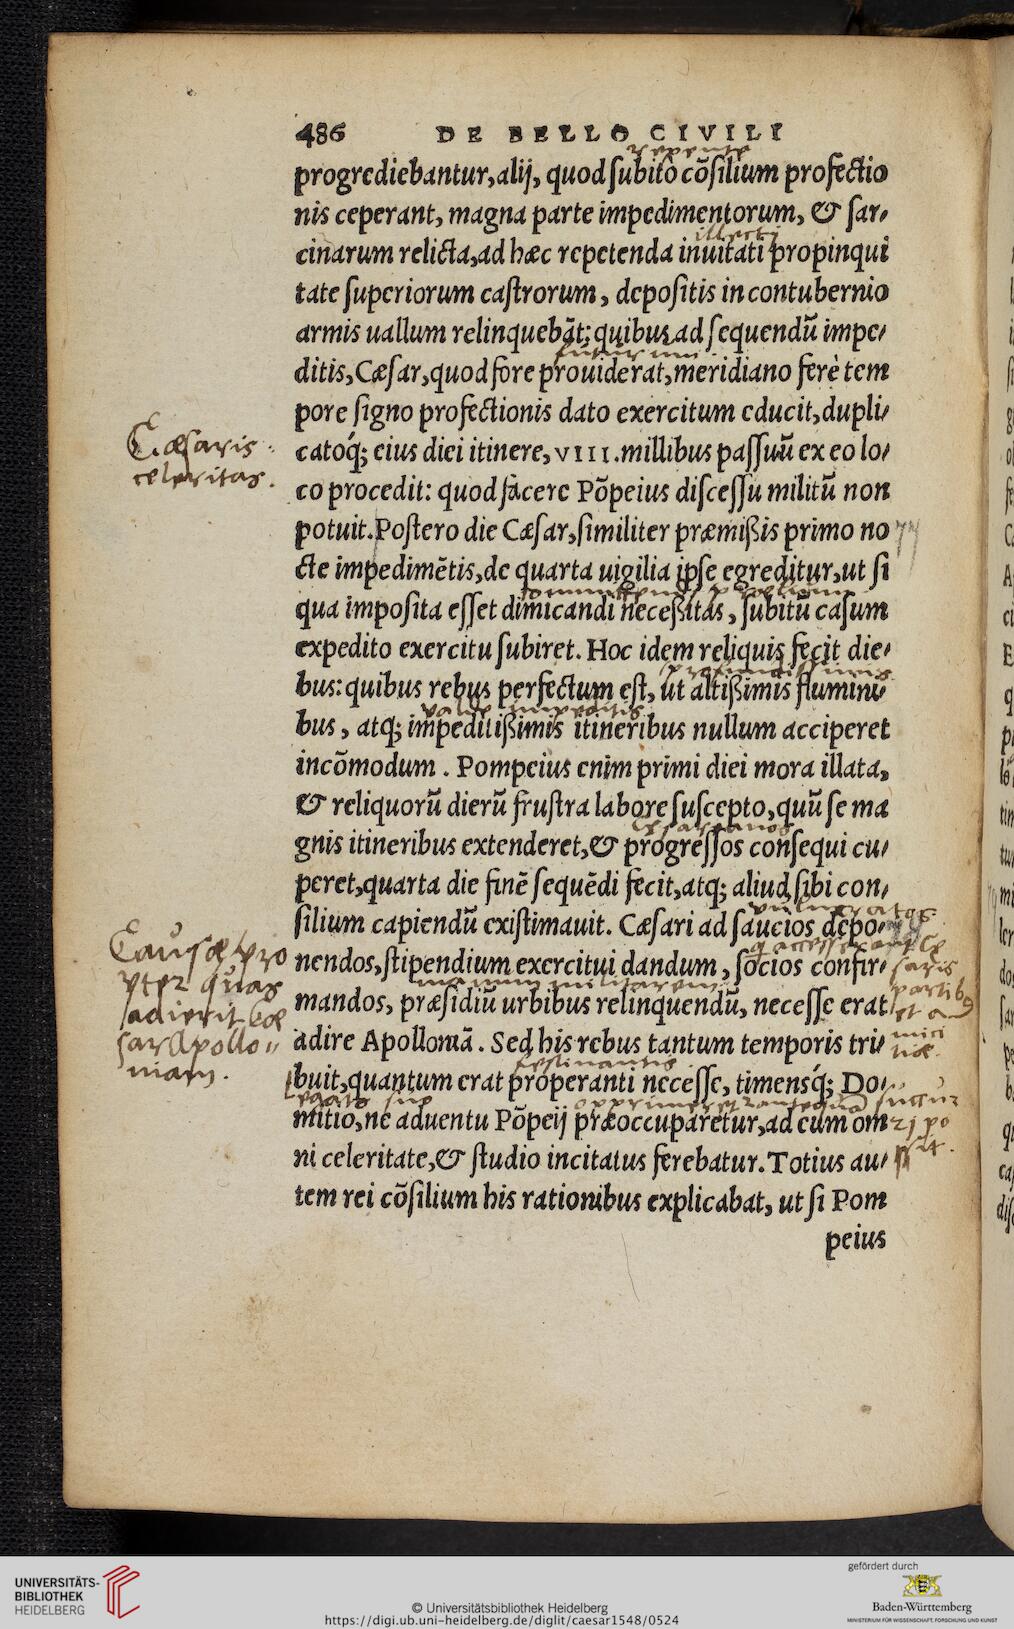 486 DE BELLO CIVILI
repente
progrediebantur, alij, quod subito cõsilium profectio
nis ceperant, magna parte impedimentorum, & sar-
illecti
cinarum relicta, ad hæc repetenda inuitati propinqui
tate superiorum castrorum, depositis in contubernio
armis uallum relinquebãt: quibus ad sequendũ impe-
futurum
ditis, Cæsar, quod fore prouiderat, meridiano ferè tem
pore signo profectionis dato exercitum educit, dupli-
Cæsaris
celeritas.
catoq́; eius diei itinere, VIII. millibus passuũ ex eo lo-
co procedit: quod facere Põpeius discessu militũ non
potuit. Postero die Cæsar, similiter præmißis primo no
77
cte impedimẽtis, de quarta uigilia ipse egreditur, ut si
qua imposita esset dimicandi neceßitas, subitũ casum
expedito exercitu subiret. Hoc idem reliquis fecit die-
profundissimis
bus: quibus rebus perfectum est, ut altißimis flumini-
valde impeditis
bus, atq; impeditißimis itineribus nullum acciperet
incõmodum. Pompeius enim primi diei mora illata,
& reliquorũ dierũ frustra labore suscepto, quũ se ma
Cæsarianos
gnis itineribus extenderet, & progressos consequi cu-
peret, quarta die finẽ sequẽdi fecit, atq; aliud sibi con-
vulneratos
silium capiendũ existimauit. Cæsari ad saucios depo-
Causæ pro
pter quas
adierit Cæ
sar Apollo-
niam.
nendos, stipendium exercitui dandum, socios confir-
mandos, præsidiũ urbibus relinquendũ, necesse erat
adire Apolloniã. Sed his rebus tantum temporis tri-
festinantis
buit, quantum erat properanti necesse, timensq́; Do-
mitio, ne aduentu Põpeij præoccuparetur, ad cum om
ni celeritate, & studio incitatus ferebatur. Totius au-
tem rei cõsilium his rationibus explicabat, ut si Pom
peius
UNIVERSITÄTS-
BIBLIOTHEK
HEIDELBERG
© Universitätsbibliothek Heidelberg
https://digi.ub.uni-heidelberg.de/diglit/caesar1548/0524
gefördert durch
Baden-Württemberg
MINISTERIUM FÜR WISSENSCHAFT, FORSCHUNG UND KUNST